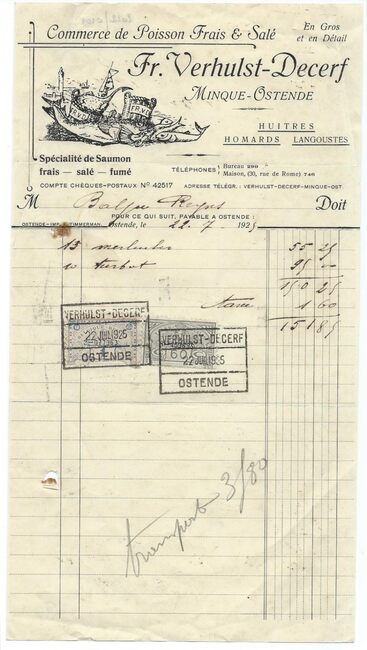 Commerce de Poisson Frais & Salé
En Gros
et en Détail
Fr. Verhulst-Decerf
MINQUE-OSTENDE
HUITRES
HOMARDS LANGOUSTES
Spécialité de Saumon
frais — salé — fumé
TÉLÉPHONES Bureau 290
Maison, (30, rue de Rome) 746
COMPTE CHÈQUES-POSTAUX No 42517 ADRESSE TÉLÉGR.: VERHULST-DECERF-MINQUE-OST
M Doit
POUR CE QUI SUIT, PAYABLE A OSTENDE:
OSTENDE-IMP. E. TIMMERMAN. Ostende, le 22.7.1925
15 55 25
10 turbot 95 00
150 25
taxe 1 60
151 85
VERHULST-DECERF
22 JUIL 1925
OSTENDE
VERHULST-DECERF
22 JUIL 1925
OSTENDE
transport 3/80